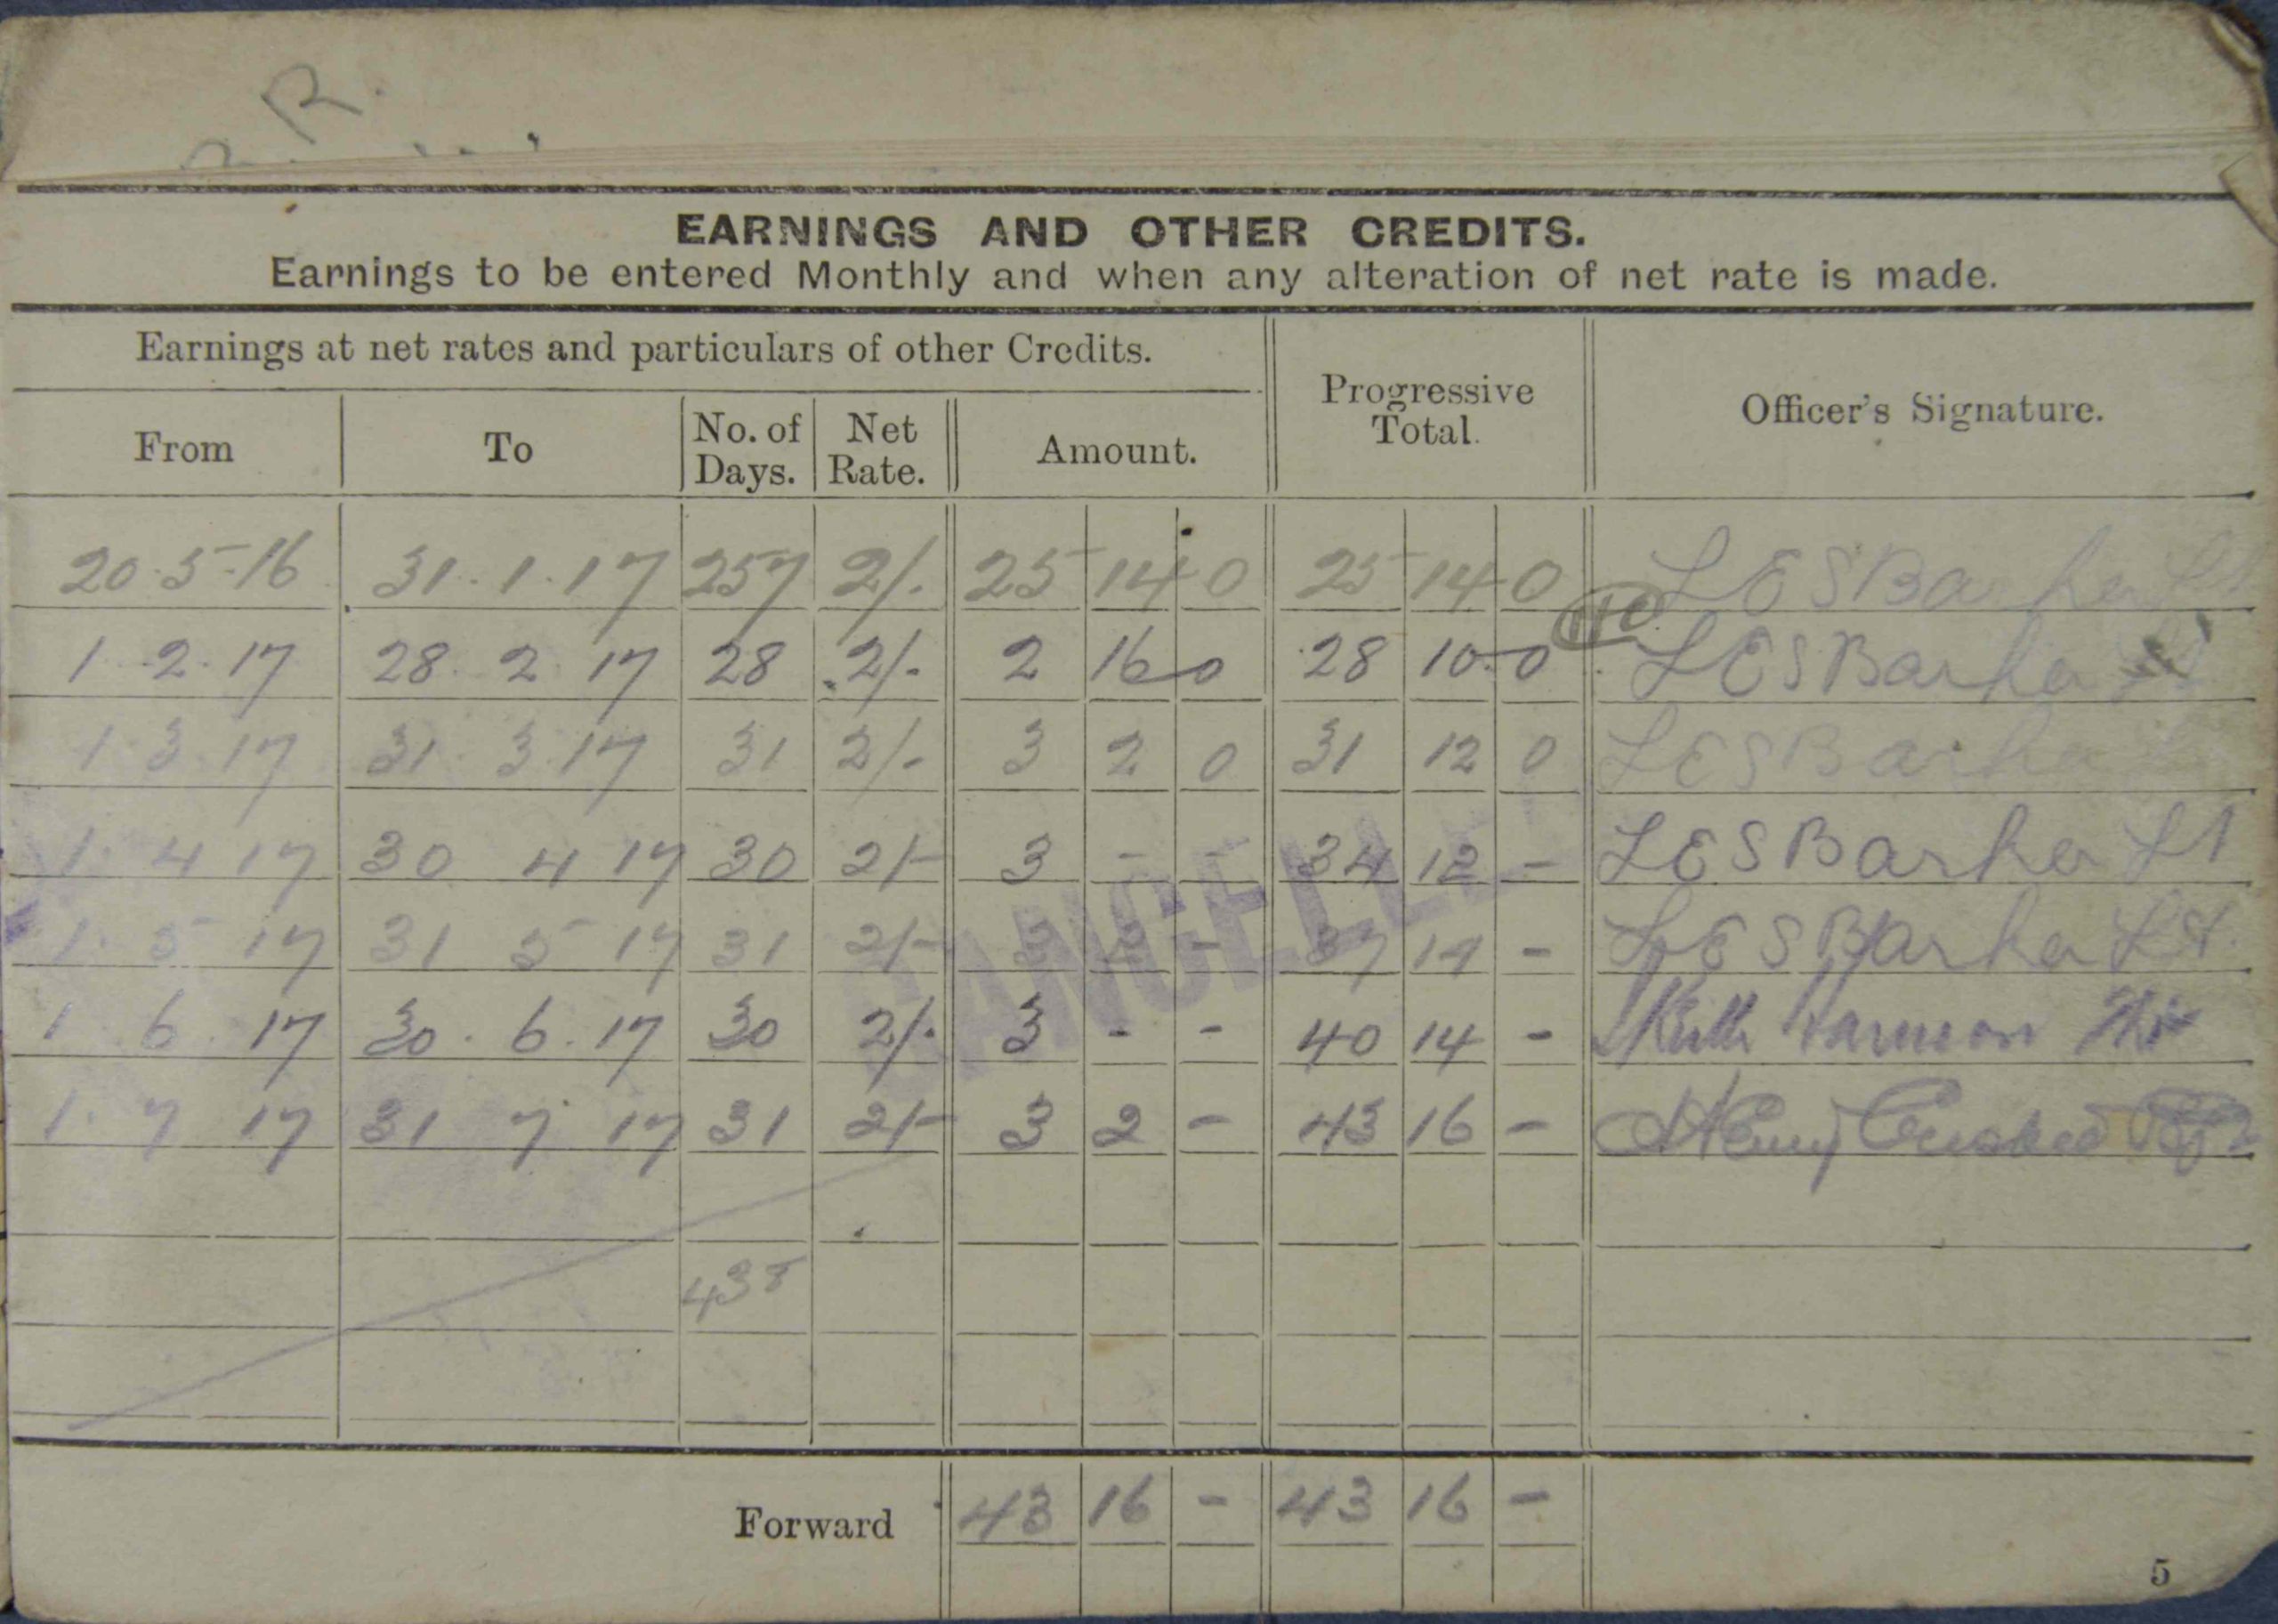 R.
EARNINGS AND OTHER CREDITS.
Earnings to be entered Monthly and when any alteration of net rate is made.
Earnings at net rates and particulars of other Credits.
Progressive Total.
Officer's Signature.
From To No. of Days. Net Rate. Amount.
20.5.16 31.1.17 257 2/. 25 14 0 25 14 0 L E S Barker Lt
1.2.17 28.2.17 28 2/. 2 16 0 28 10 0 L E S Barker
1.3.17 31.3.17 31 2/- 3 2 0 31 12 0 L E S Barker
1.4 17 30 4 17 30 2/- 3 - - 34 12 - L E S Barker Lt
1.5 17 31 5 17 31 2/- 3 2 - 37 14 - L E S Barker Lt.
1 6 17 30.6.17 30 2/. 3 - - 40 14 -
1.7 17 31 7 17 31 2/- 3 2 - 43 16 -
CANCELLED
438
Forward 43 16 - 43 16 -
5